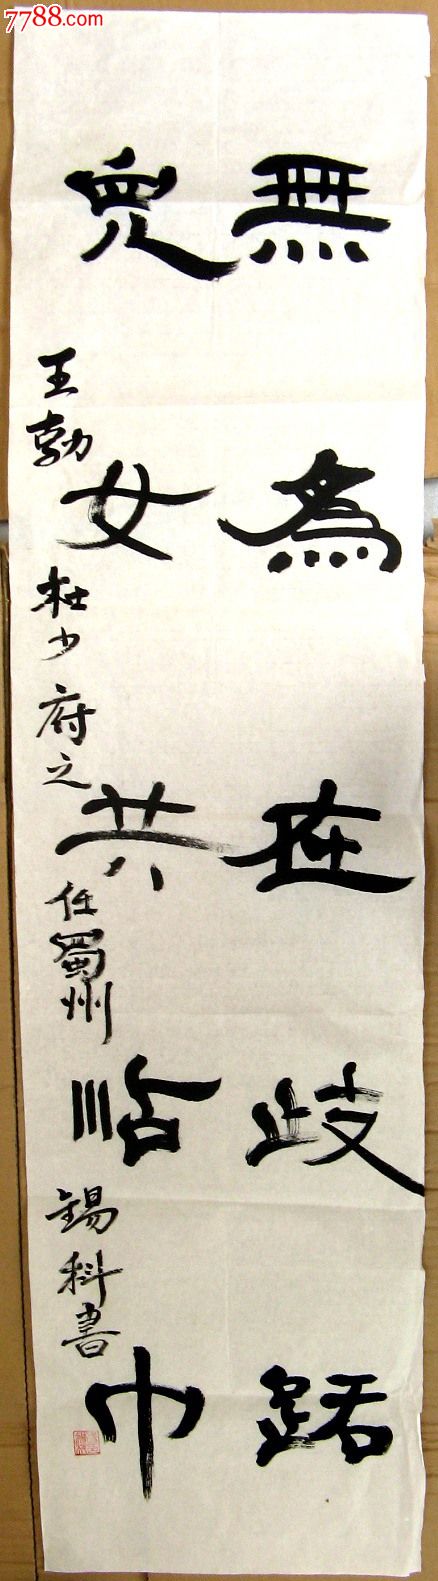 7788.com
無為在歧路
兒女共沾巾
王勃 杜少府之任蜀州 錫科書